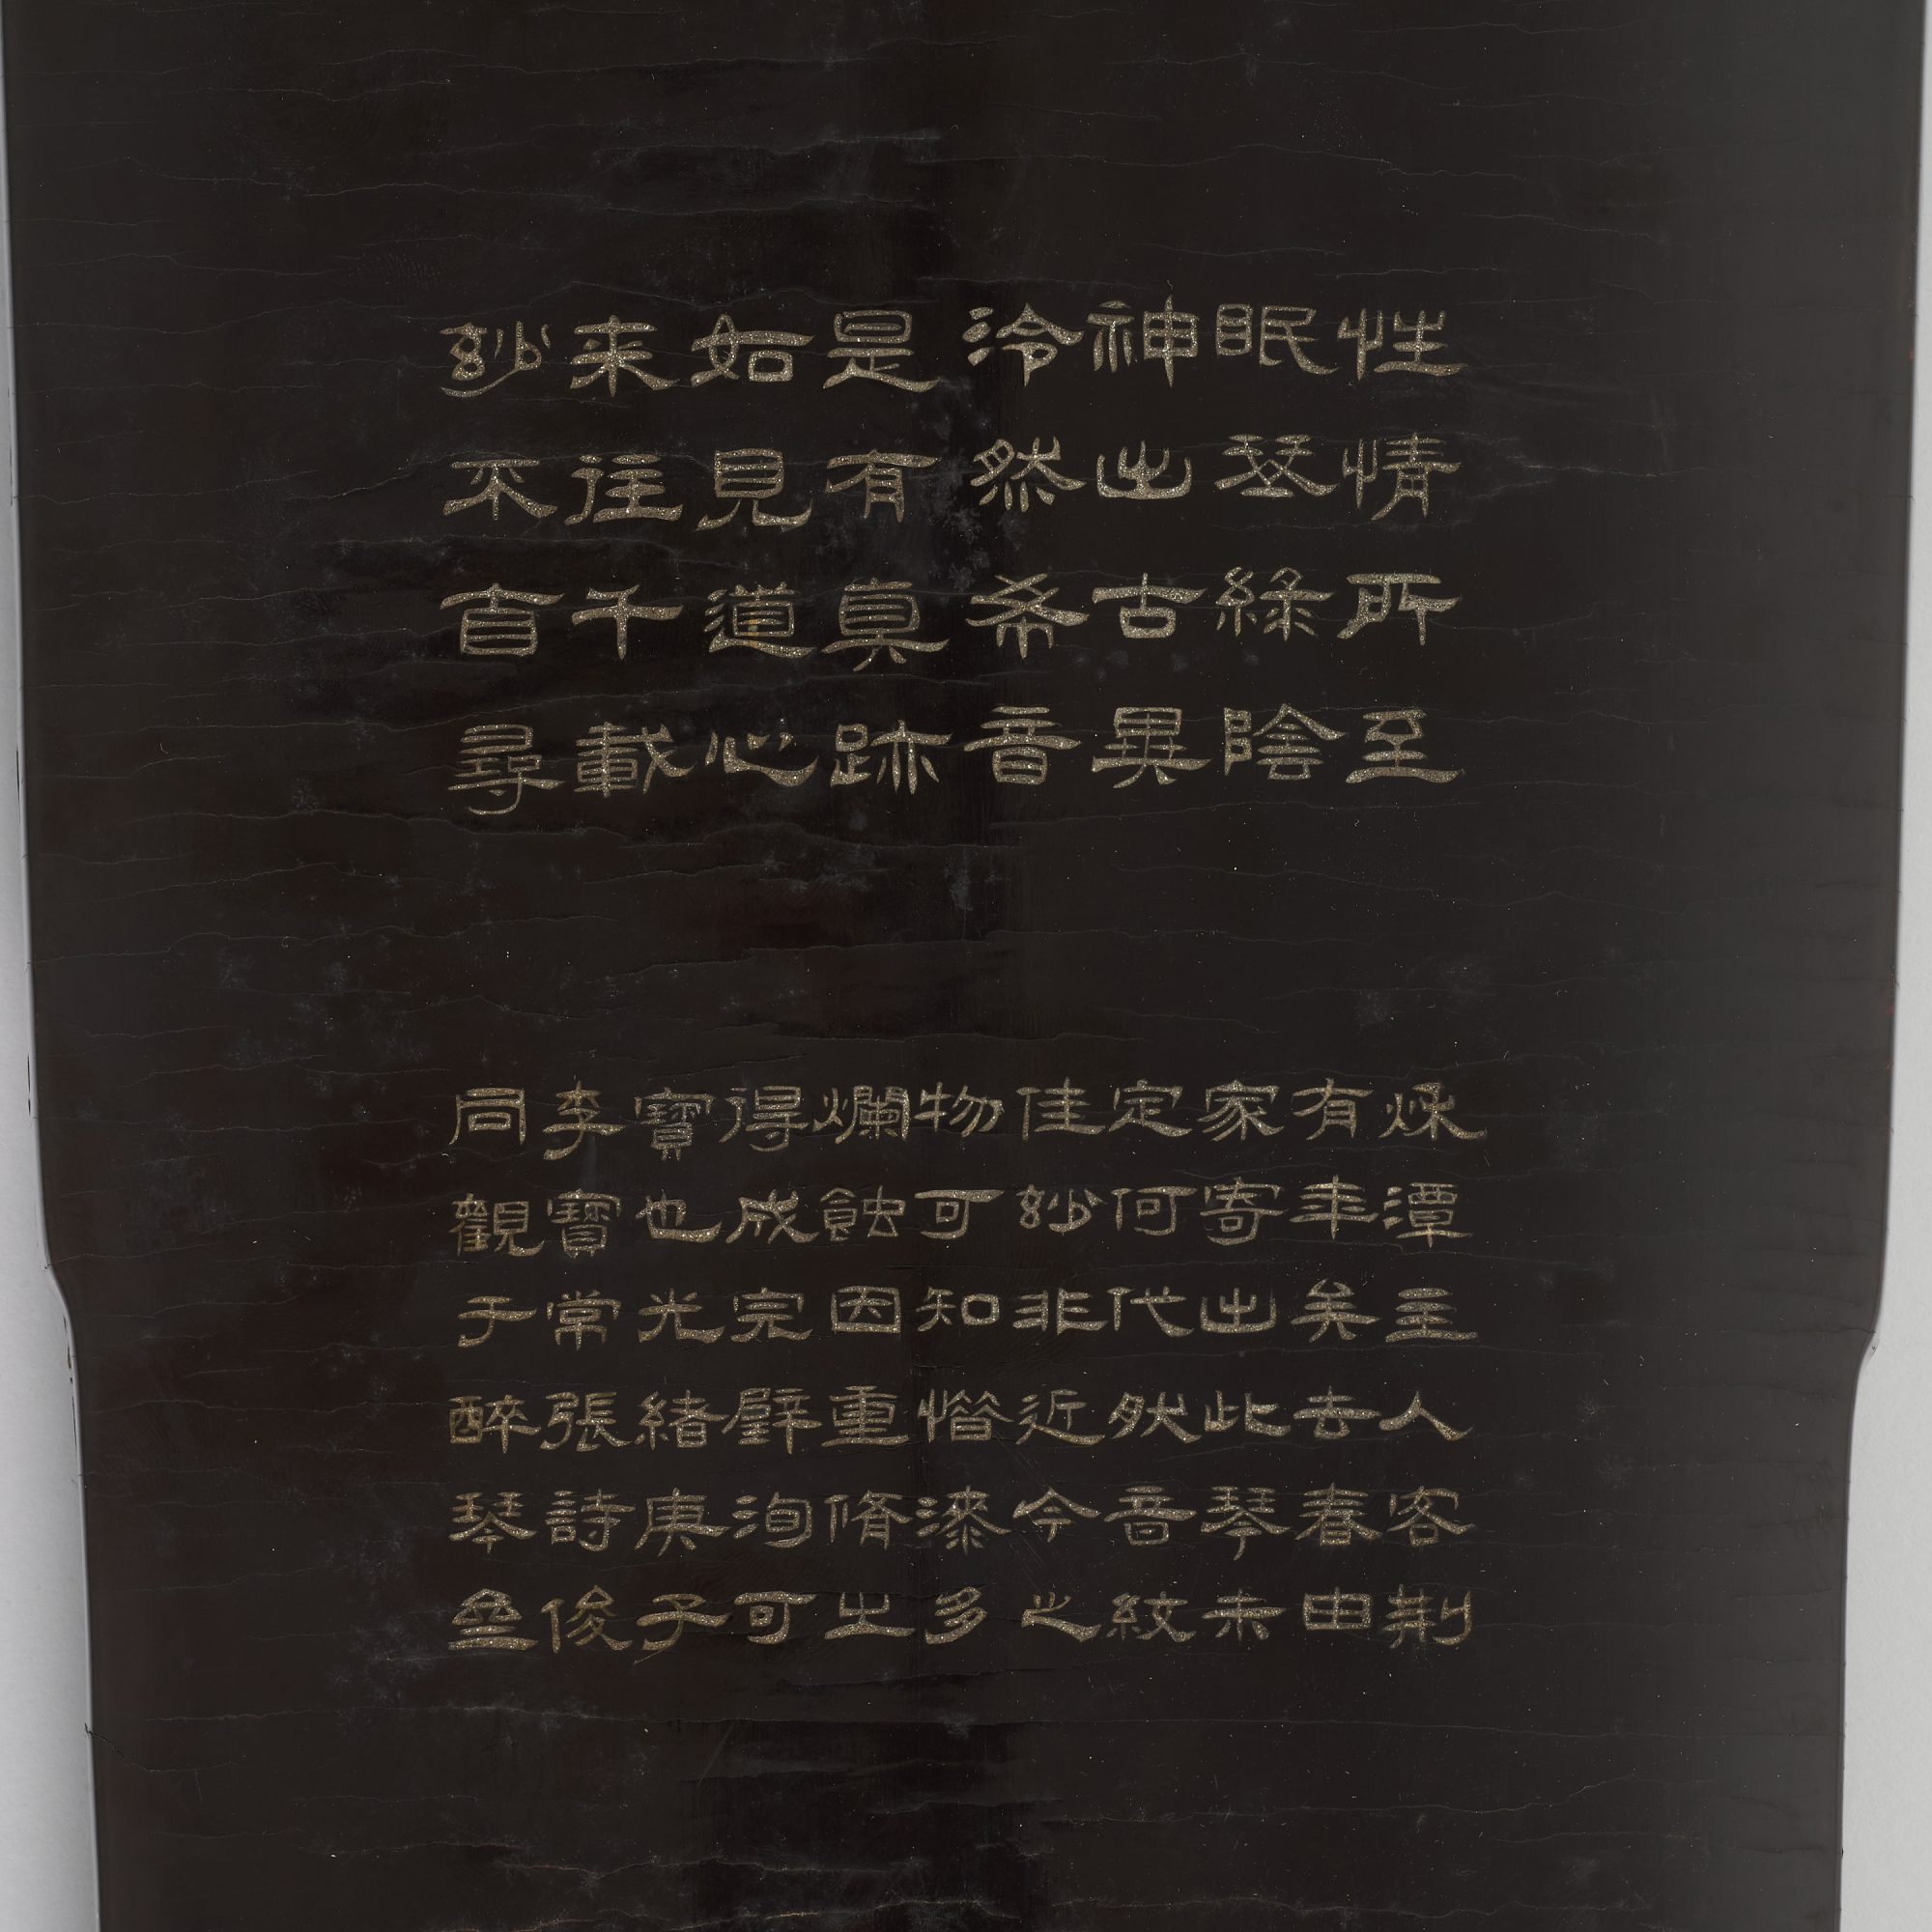 性情所至
眠琴綠陰
神出古異
泠然希音
是有真跡
如見道心
来往千載
玅不自尋
秌潭主人客荆
有年矣去春由
家寄出此琴未
定何代然音紋
佳玅非近今之
物可知惜漆多
爛蝕因重脩之
得成完璧洵可
寶也光緒庚子
李寶常張詩俊
同觀于醉琴垒